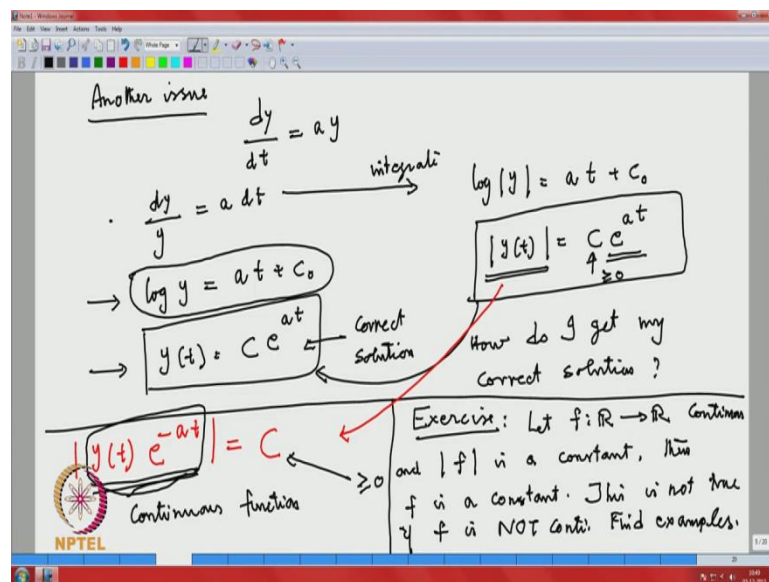 Note1 - Windows Journal
File Edit View Insert Actions Tools Help
Whole Page
Another issue
dy/dt = a y
dy/y = a dt
integrati
log |y| = a t + C₀
|y(t)| = C e^{at}
≥0
→ log y = at + C₀
→ y(t) = C e^{at}
Correct solution
How do I get my
correct solution ?
|y(t) e^{-at}| = C
≥0
Continuous function
Exercise : Let f: ℝ → ℝ
and |f| is a constant, then
f is a constant. This is not true
if f is NOT conti. Find examples.
NPTEL
5/20
20